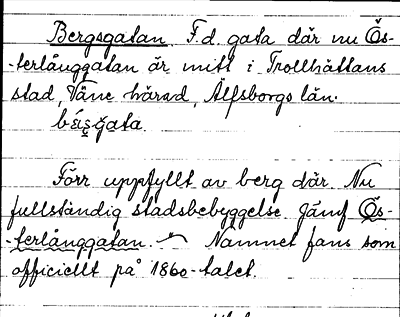 Bergsgatan F.d. gata där nu Ös-
-terlånggatan är mitt i Trollhättans
stad, Väne härad, Älfsborgs län.
Förr uppfyllt av berg där. Nu
fullständig stadsbebyggelse. Jämf Ös-
-terlånggatan. Namnet fans som
officiellt på 1860-talet.